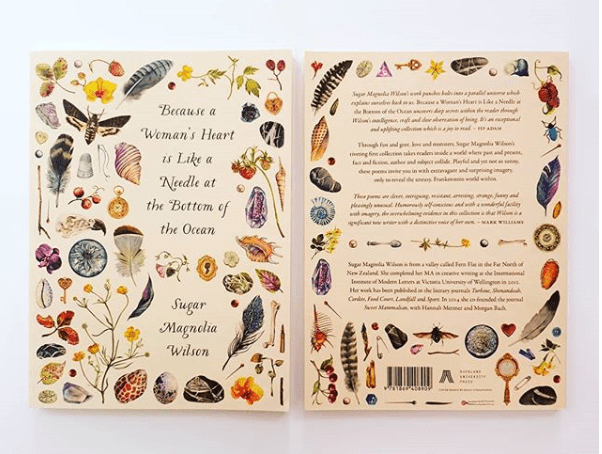 Because a
Woman's Heart
is Like a
Needle at
the Bottom of
the Ocean
Sugar
Magnolia
Wilson
Sugar Magnolia Wilson's work punches holes into a parallel universe which
explains ourselves back to us. Because a Woman's Heart is Like a Needle at
the Bottom of the Ocean uncovers deep secrets within the reader through
Wilson's intelligence, craft and close observation of being. It's an exceptional
and uplifting collection which is a joy to read.
Through fun and gore, love and monsters, Sugar Magnolia Wilson's
riveting first collection takes readers inside a world where past and present,
fact and fiction, author and subject collide. Playful and yet not so sunny,
these poems invite you in with extravagant and surprising imagery,
only to reveal the uneasy, Frankenstein world within.
These poems are clever, intriguing, resistant, arresting, strange, funny and
pleasingly unusual. Humorously self-conscious and with a wonderful facility
with imagery, the overwhelming evidence in this collection is that Wilson is a
significant new writer with a distinctive voice of her own. – MARK WILLIAMS
Sugar Magnolia Wilson is from a valley called Fern Flat in the Far North of
New Zealand. She completed her MA in creative writing at the International
Institute of Modern Letters at Victoria University of Wellington in 2012.
Her work has been published in the literary journals Turbine, Shenandoah,
Cordite, Food Court, Landfall and Sport. In 2014 she co-founded the journal
Sweet Mammalian, with Hannah Mettner and Morgan Bach.
AUCKLAND
UNIVERSITY
PRESS
9 781869 408909